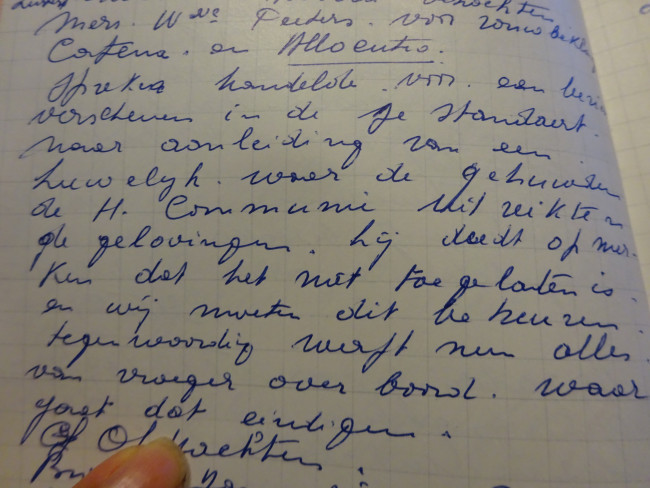 Mevr. Wwe Peeters. voor rouwbeklag
Catena. en Allocutio.
Spreker handelde. voor. een bericht
verschenen in de ge Standaert.
naar aanleiding van een
huwelijk. waar de gehuwden
de H. Communie uit reikten
de gelovingen. hij doedt op mer-
ken dat het niet toe gelaten is.
en wij moeten dit be keuren.
tegenwoordig werft men alles
van vroeger over boord. waar
gaat dat eindigen.